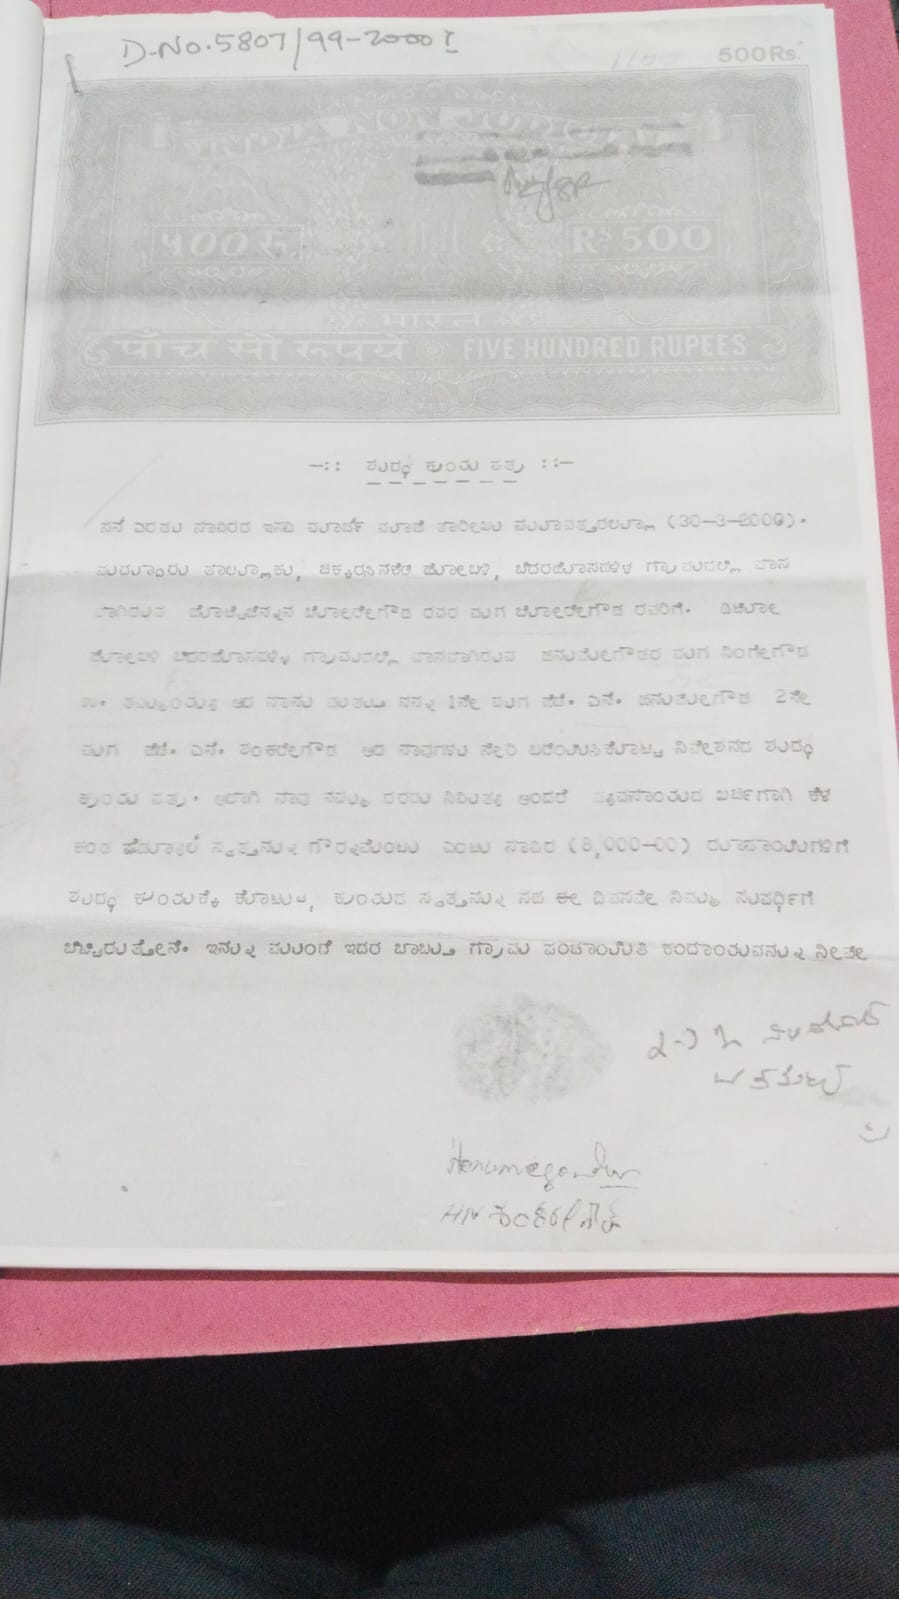 D-No.5807/99-2000 I
500Rs.
INDIA NON JUDICIAL
५०० रु RS 500
भारत
पाँच सौ रूपये FIVE HUNDRED RUPEES
-:: ಶುದ್ಧ ಕ್ರಯದ ಪತ್ರ ::-
ಸನೆ ಎರಡು ಸಾವಿರದ ಇಸವಿ ಮಾರ್ಚಿ ಮಾಹೆ ತಾರೀಖು ಮೂವತ್ತರಲ್ಲೂ (30-3-2000).
ಮದ್ದೂರು ತಾಲ್ಲೂಕು, ಚಿಕ್ಕರಸಿನಕೆರೆ ಹೋಬಳಿ, ಗ್ರಾಮದಲ್ಲಿ ವಾಸ
ವಾಗಿರುವ ಬೋರೇಗೌಡ ರವರ ಮಗ ಬೋರೇಗೌಡ ರವರಿಗೆ.
ಹೋಬಳಿ ಗ್ರಾಮದಲ್ಲಿ ವಾಸವಾಗಿರುವ ಹನುಮೇಗೌಡರ ಮಗ ನಿಂಗೇಗೌಡ
ಆದ ನಾನು ಮತ್ತು ನನ್ನ 1ನೇ ಮಗ ಹೆಚ್. ಎನ್. ಹನುಮೇಗೌಡ 2ನೇ
ಮಗ ಹೆಚ್. ಎನ್. ಶಂಕರೇಗೌಡ ಆದ ನಾವುಗಳು ಸೇರಿ ಬರೆಯಿಸಿಕೊಟ್ಟ ನಿವೇಶನದ ಶುದ್ಧ
ಕ್ರಯದ ಪತ್ರ. ಆಗಿ ನಾವು ನಮ್ಮ ದರದು ನಿಮಿತ್ಯ ಅಂದರೆ ವ್ಯವಸಾಯದ ಖರ್ಚಿಗಾಗಿ ಕೆಳ
ಕಂಡ ಷೆಡ್ಯೂಲ್ ಸ್ವತ್ತನ್ನು ಗೌರ್ನಮೆಂಟು ಎಂಟು ಸಾವಿರ (8,000-00) ರೂಪಾಯಿಗಳಿಗೆ
ಶುದ್ಧ ಕ್ರಯಕ್ಕೆ ಕೊಟ್ಟು, ಕ್ರಯದ ಸ್ವತ್ತನ್ನು ಸದ ಈ ದಿವಸವೇ ನಿಮ್ಮ ಸುಪರ್ಧಿಗೆ
ಬಿಟ್ಟಿರುತ್ತೇನೆ. ಇನ್ನು ಮುಂದೆ ಇದರ ಬಾಬ್ತು ಗ್ರಾಮ ಪಂಚಾಯಿತಿ ಕಂದಾಯವನ್ನು ನೀವೇ
Hanumegowda
HN ಶಂಕರೇಗೌಡ